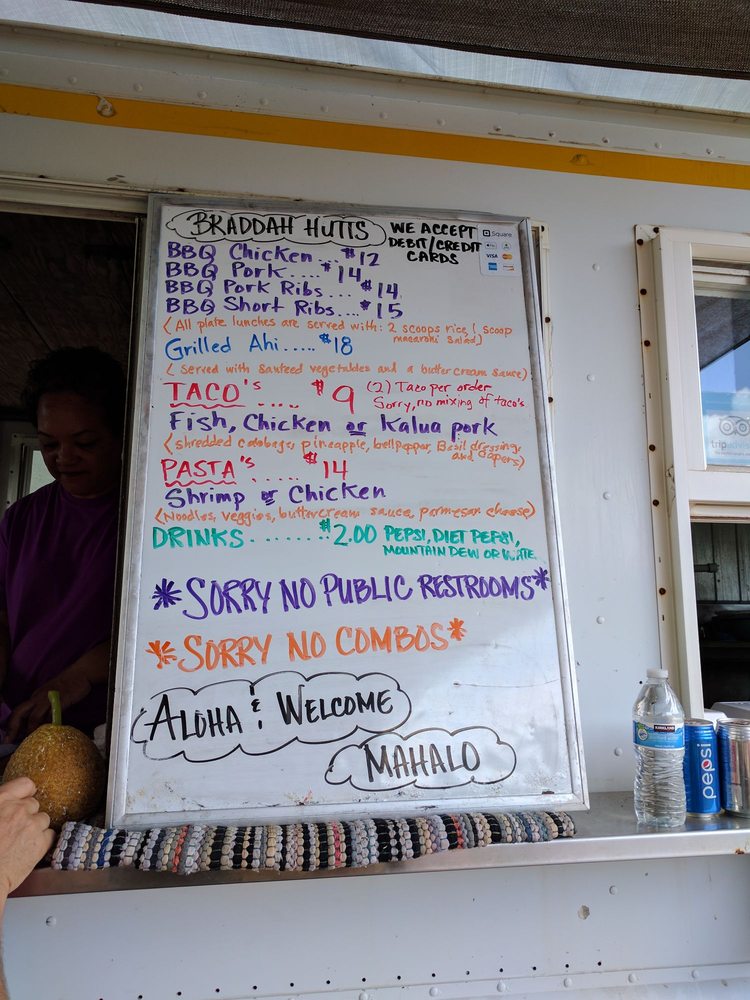 BRADDAH HUTTS
WE ACCEPT
DEBIT/CREDIT
CARDS
Square
VISA
BBQ Chicken...$12
BBQ Pork....$14
BBQ Pork Ribs...$14
BBQ Short Ribs...$15
(All plate lunches are served with: 2 scoops rice, 1 scoop
macaroni salad)
Grilled Ahi.....$18
(served with sauteed vegetables and a butter cream sauce)
TACO's ..... $9 (2) Taco per order
Sorry, no mixing of taco's
Fish, Chicken or Kalua pork
(shredded cabbage, pineapple, bell pepper, Basil dressing,
and capers)
PASTA's ..... $14
Shrimp or Chicken
(Noodles, veggies, buttercream sauce, parmesan cheese)
DRINKS.......$2.00 PEPSI, DIET PEPSI,
MOUNTAIN DEW OR WATE
*SORRY NO PUBLIC RESTROOMS*
*SORRY NO COMBOS*
ALOHA & WELCOME
MAHALO
KIRKLAND
pepsi